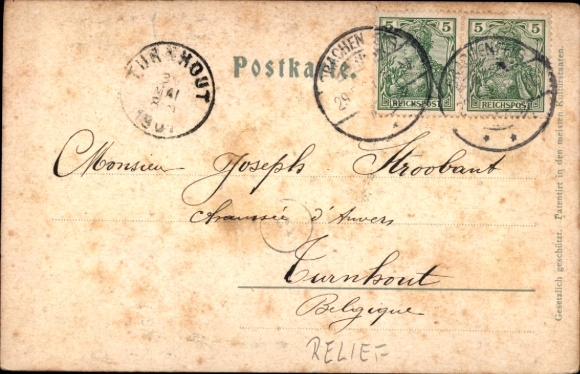 Postkarte.
TURNHOUT
MAI
1901
AACHEN
29
5 5
REICHSPOST REICHSPOST
Monsieur Joseph Stroobant
Chaussée d'Anvers
Turnhout
Belgique
RELIEF
Gesetzlich geschützt. Patentirt in den meisten Kulturstaaten.